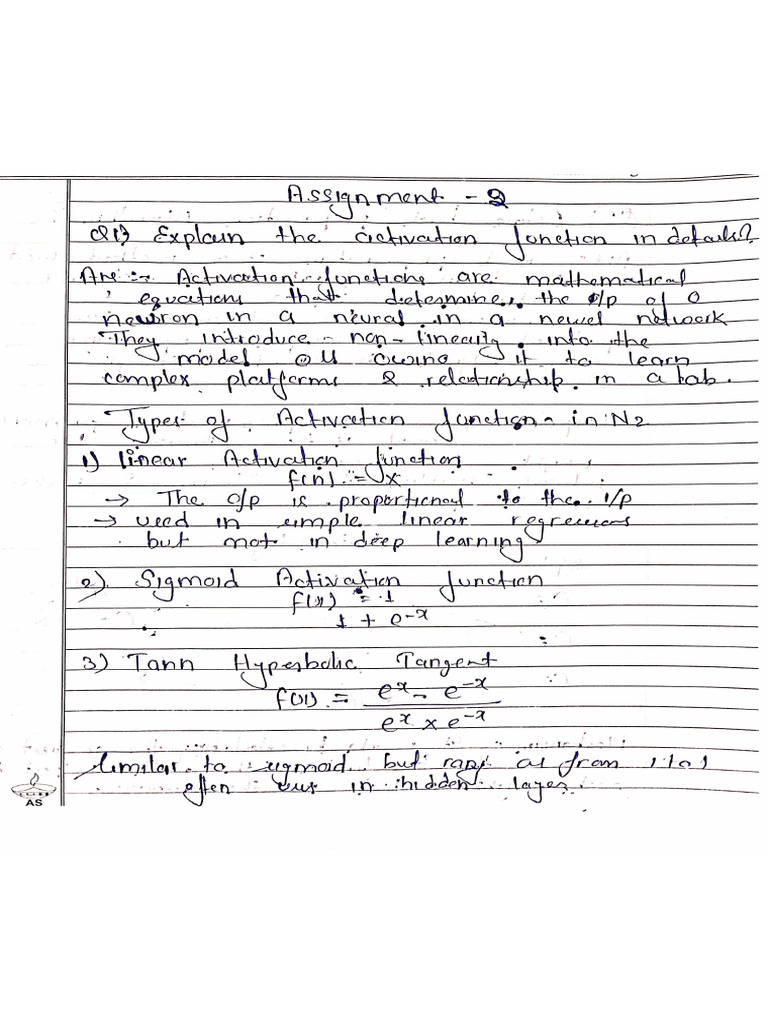 Assignment - 2
Q1) Explain the activation function in details?
Ans :- Activation functions are mathematical
equations that determines the o/p of a
newron in a neural in a newel network
They introduce - non-linearity into the
model it to learn
complex platforms & relationship in a
Types of Activation function - in N2
1) linear Activation function
f(n) = x
→ The o/p is proportional to the i/p
→ used in simple linear regressions
but not in deep learning
2) Sigmoid Activation function
f(x) = 1
1 + e-x
3) Tann Hyperbolic Tangent
f(x) = ex - e-x
ex x e-x
Similar to sigmoid but as from 1 to 1
often in hidden layer.
AS